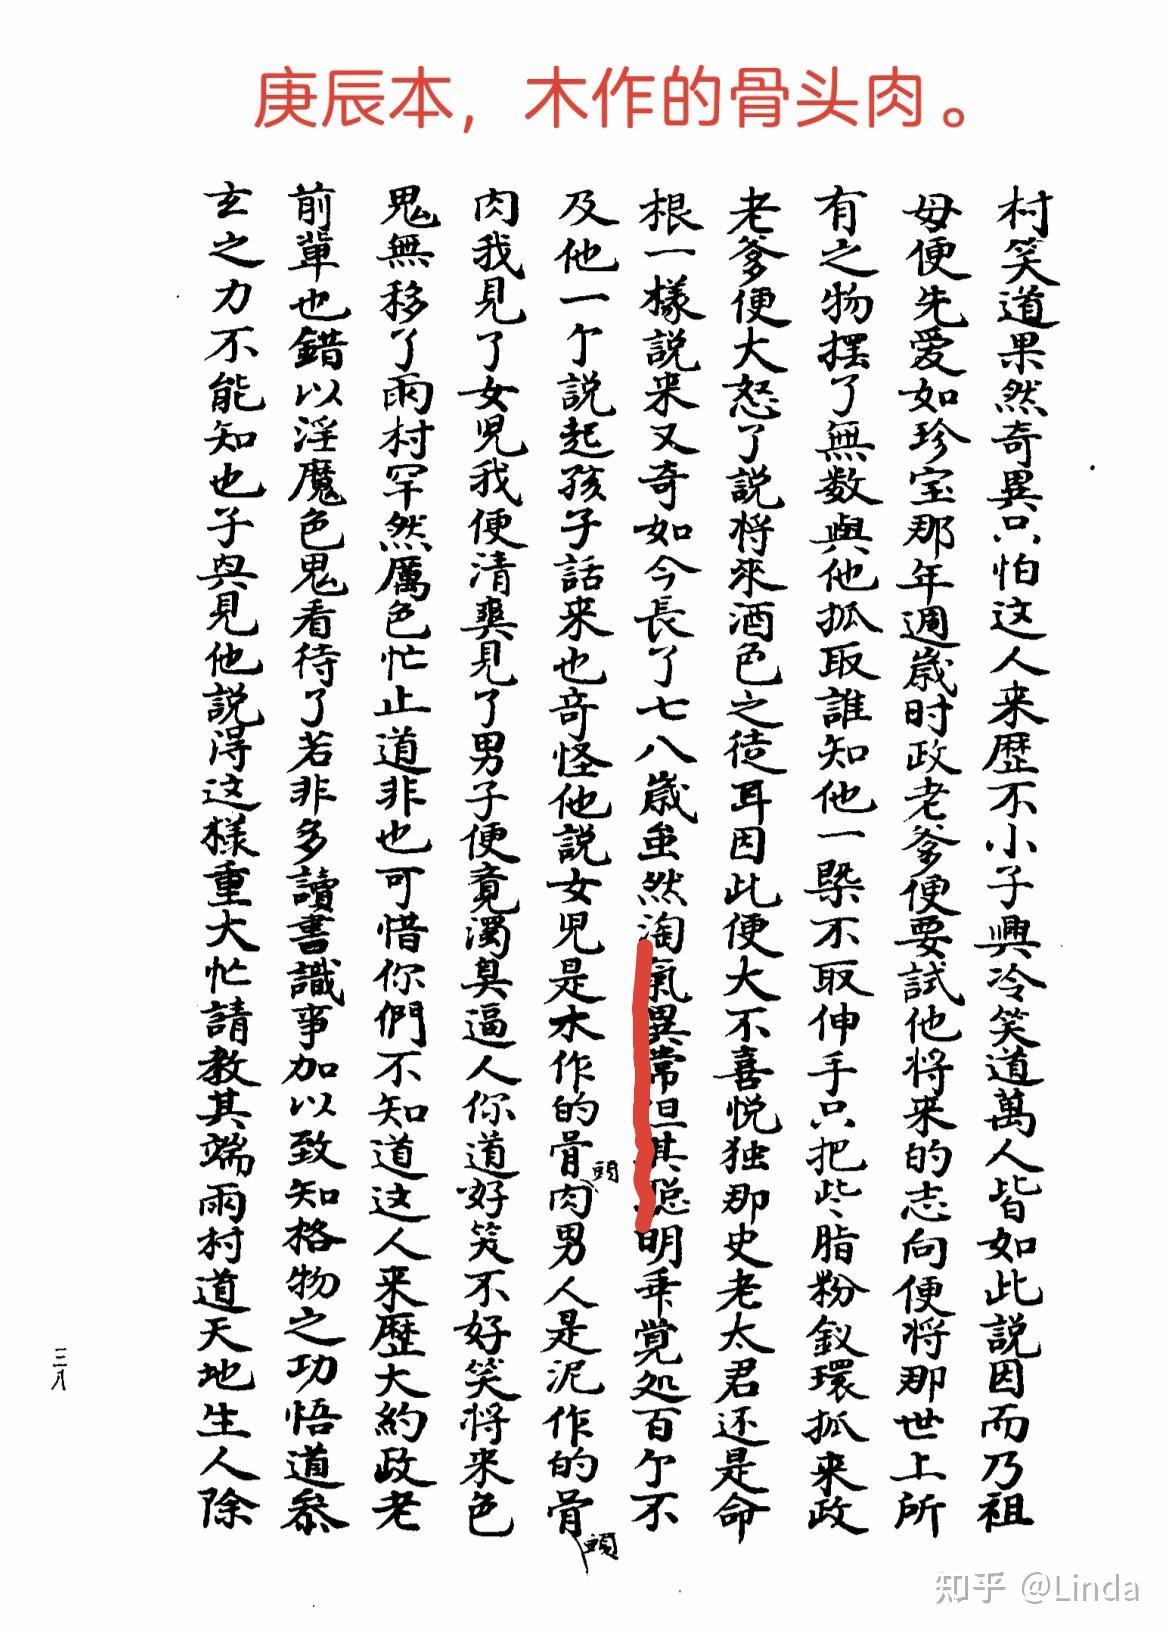 庚辰本，木作的骨头肉。
村笑道果然奇異只怕这人来歷不小子興冷笑道萬人皆如此説因而乃祖
母便先愛如珍宝那年週歳时政老爹便要試他将来的志向便将那世上所
有之物摆了無数與他抓取誰知他一槩不取伸手只把些脂粉釵環抓来政
老爹便大怒了説将來酒色之徒耳因此便大不喜悦独那史老太君还是命
根一樣説来又奇如今長了七八歲虽然淘氣異常但其聪明乖觉処百个不
及他一个説起孩子話来也奇怪他説女児是木作的骨頭肉男人是泥作的骨頭
肉我見了女児我便清爽見了男子便竟濁臭逼人你道好笑不好笑将来色
鬼無移了雨村罕然厲色忙止道非也可惜你們不知道这人来歷大約政老
前輩也錯以淫魔色鬼看待了若非多讀書識事加以致知格物之功悟道叅
玄之力不能知也子興見他説得这樣重大忙請教其端雨村道天地生人除
三八
知乎 @Linda